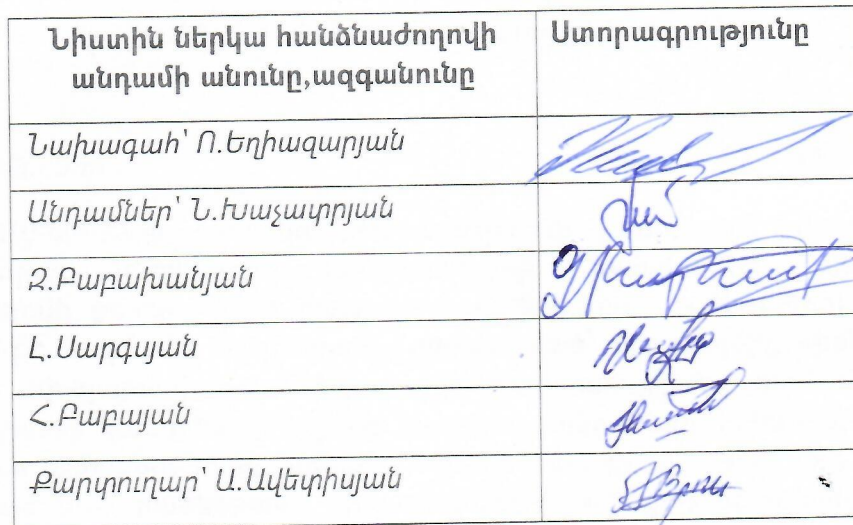 Նիստին ներկա հանձնաժողովի
անդամի անունը,ազգանունը
Ստորագրությունը
Նախագահ՝ Ո.Եղիազարյան
Անդամներ՝ Ն.Խաչատրյան
Զ.Բաբախանյան
Լ.Սարգսյան
Հ.Բաբայան
Քարտուղար՝ Ա.Ավետիսյան